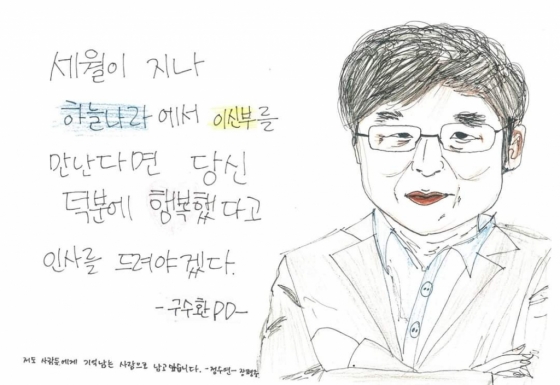 세월이 지나
하늘나라에서 이신부를
만난다면 당신
덕분에 행복했다고
인사를 드려야겠다.
-구수환PD-
저도 사람들에게 기억남는 사람으로 남고 싶습니다. -정우연-